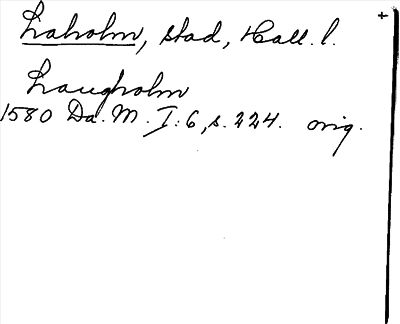 Laholm, stad, Hall. l. +
Laugholm
1580 Da. M. I:6, s. 224. orig.